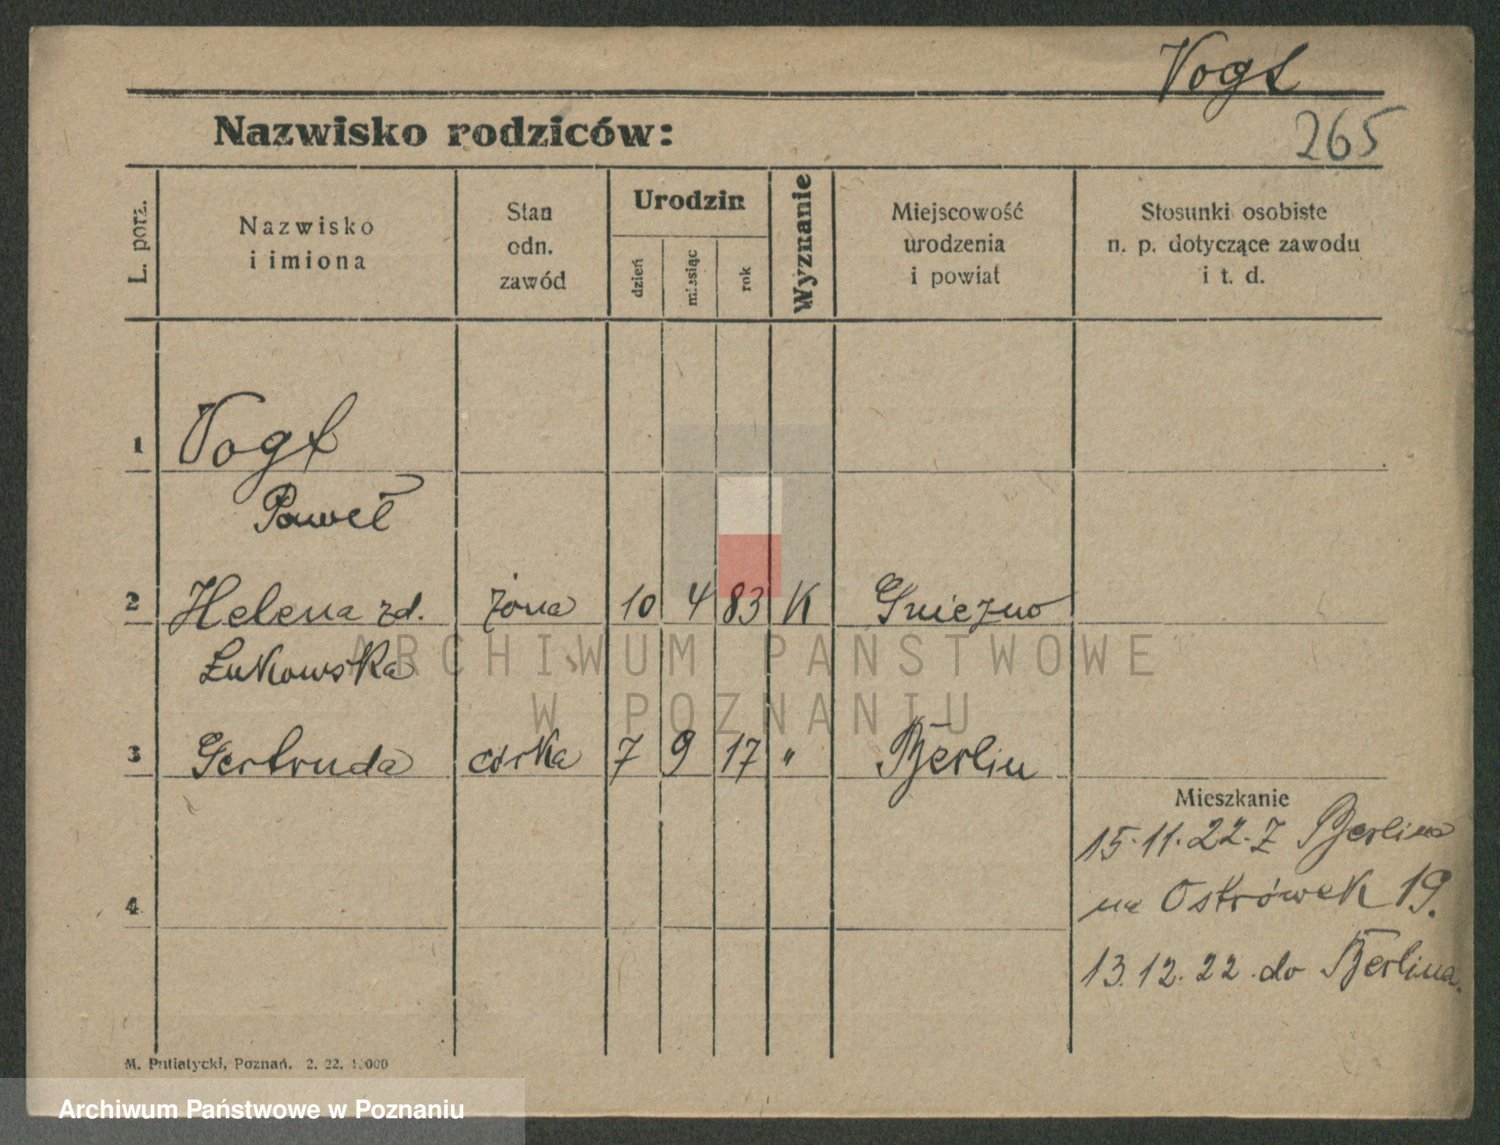 Vogt
Nazwisko rodziców:
265
L. porz.
Nazwisko
i imiona
Stan
odn.
zawód
Urodzin
dzień
miesiąc
rok
Wyznanie
Miejscowość
urodzenia
i powiat
Stosunki osobiste
n. p. dotyczące zawodu
i t. d.
1 Vogt
Paweł
2 Helena zd. żona 10 4 83 K Gniezno
Łukowska
ARCHIWUM PAŃSTWOWE
W POZNANIU
3 Gertruda córka 7 9 17 " Berlin
Mieszkanie
15.11.22. Z Berlina
na Ostrówek 19.
4
13.12.22. do Berlina.
M. Putiatycki, Poznań. 2. 22.
Archiwum Państwowe w Poznaniu